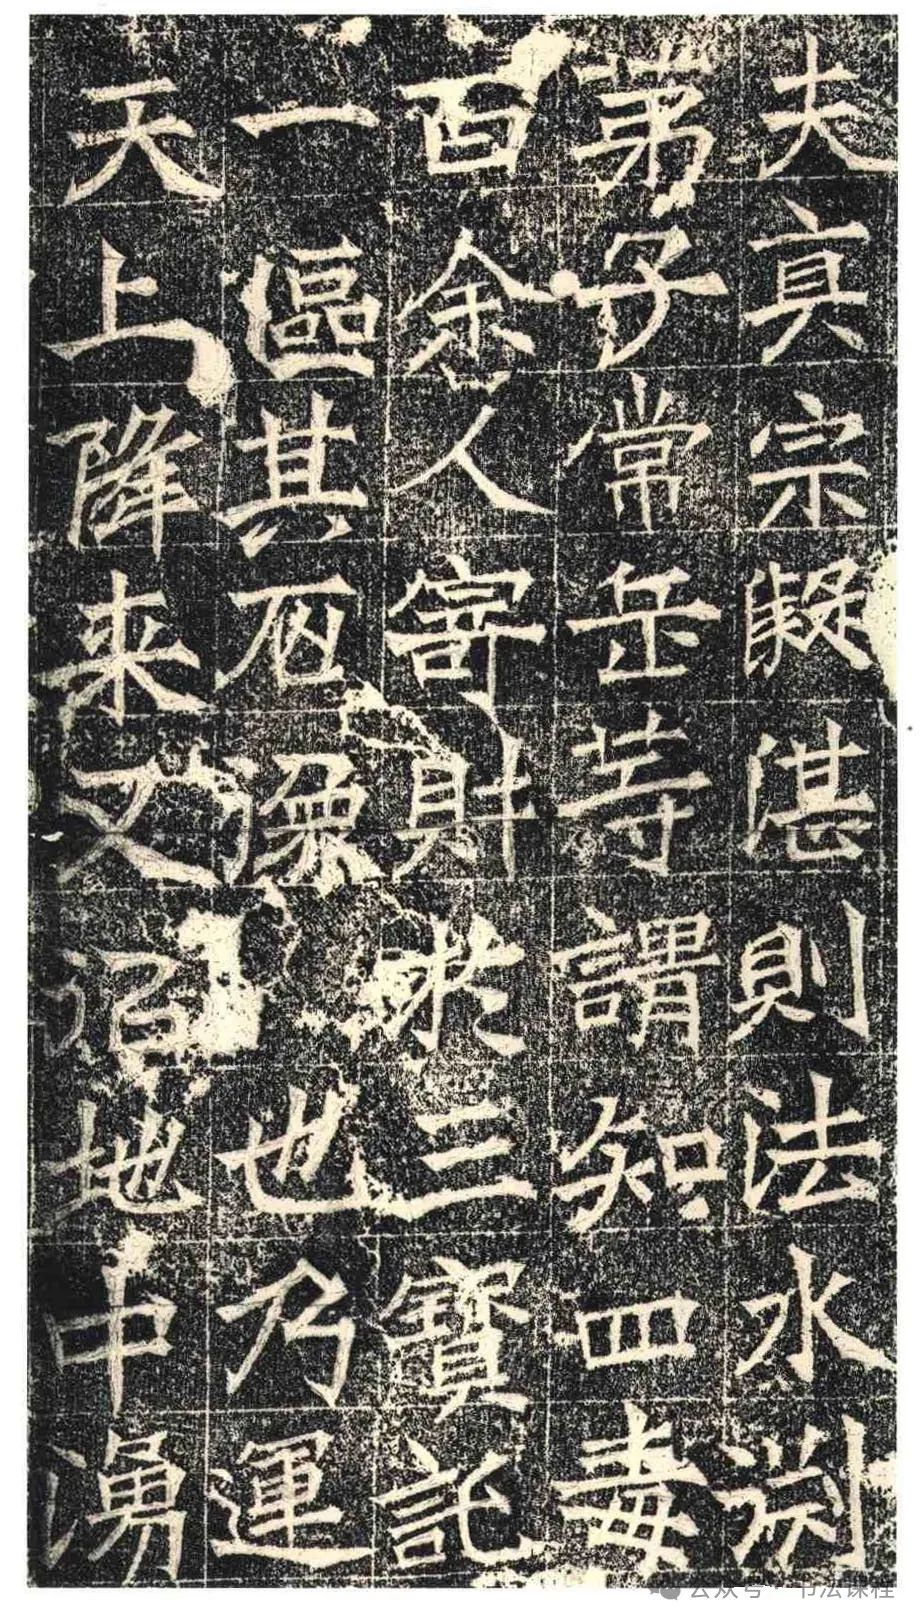 夫真宗凝湛則法水渊
第子常岳等謂知四毒
百余人寄財於三寶託
一區其石像也乃運
天上降来又佀地中湧
公众号·书法课程